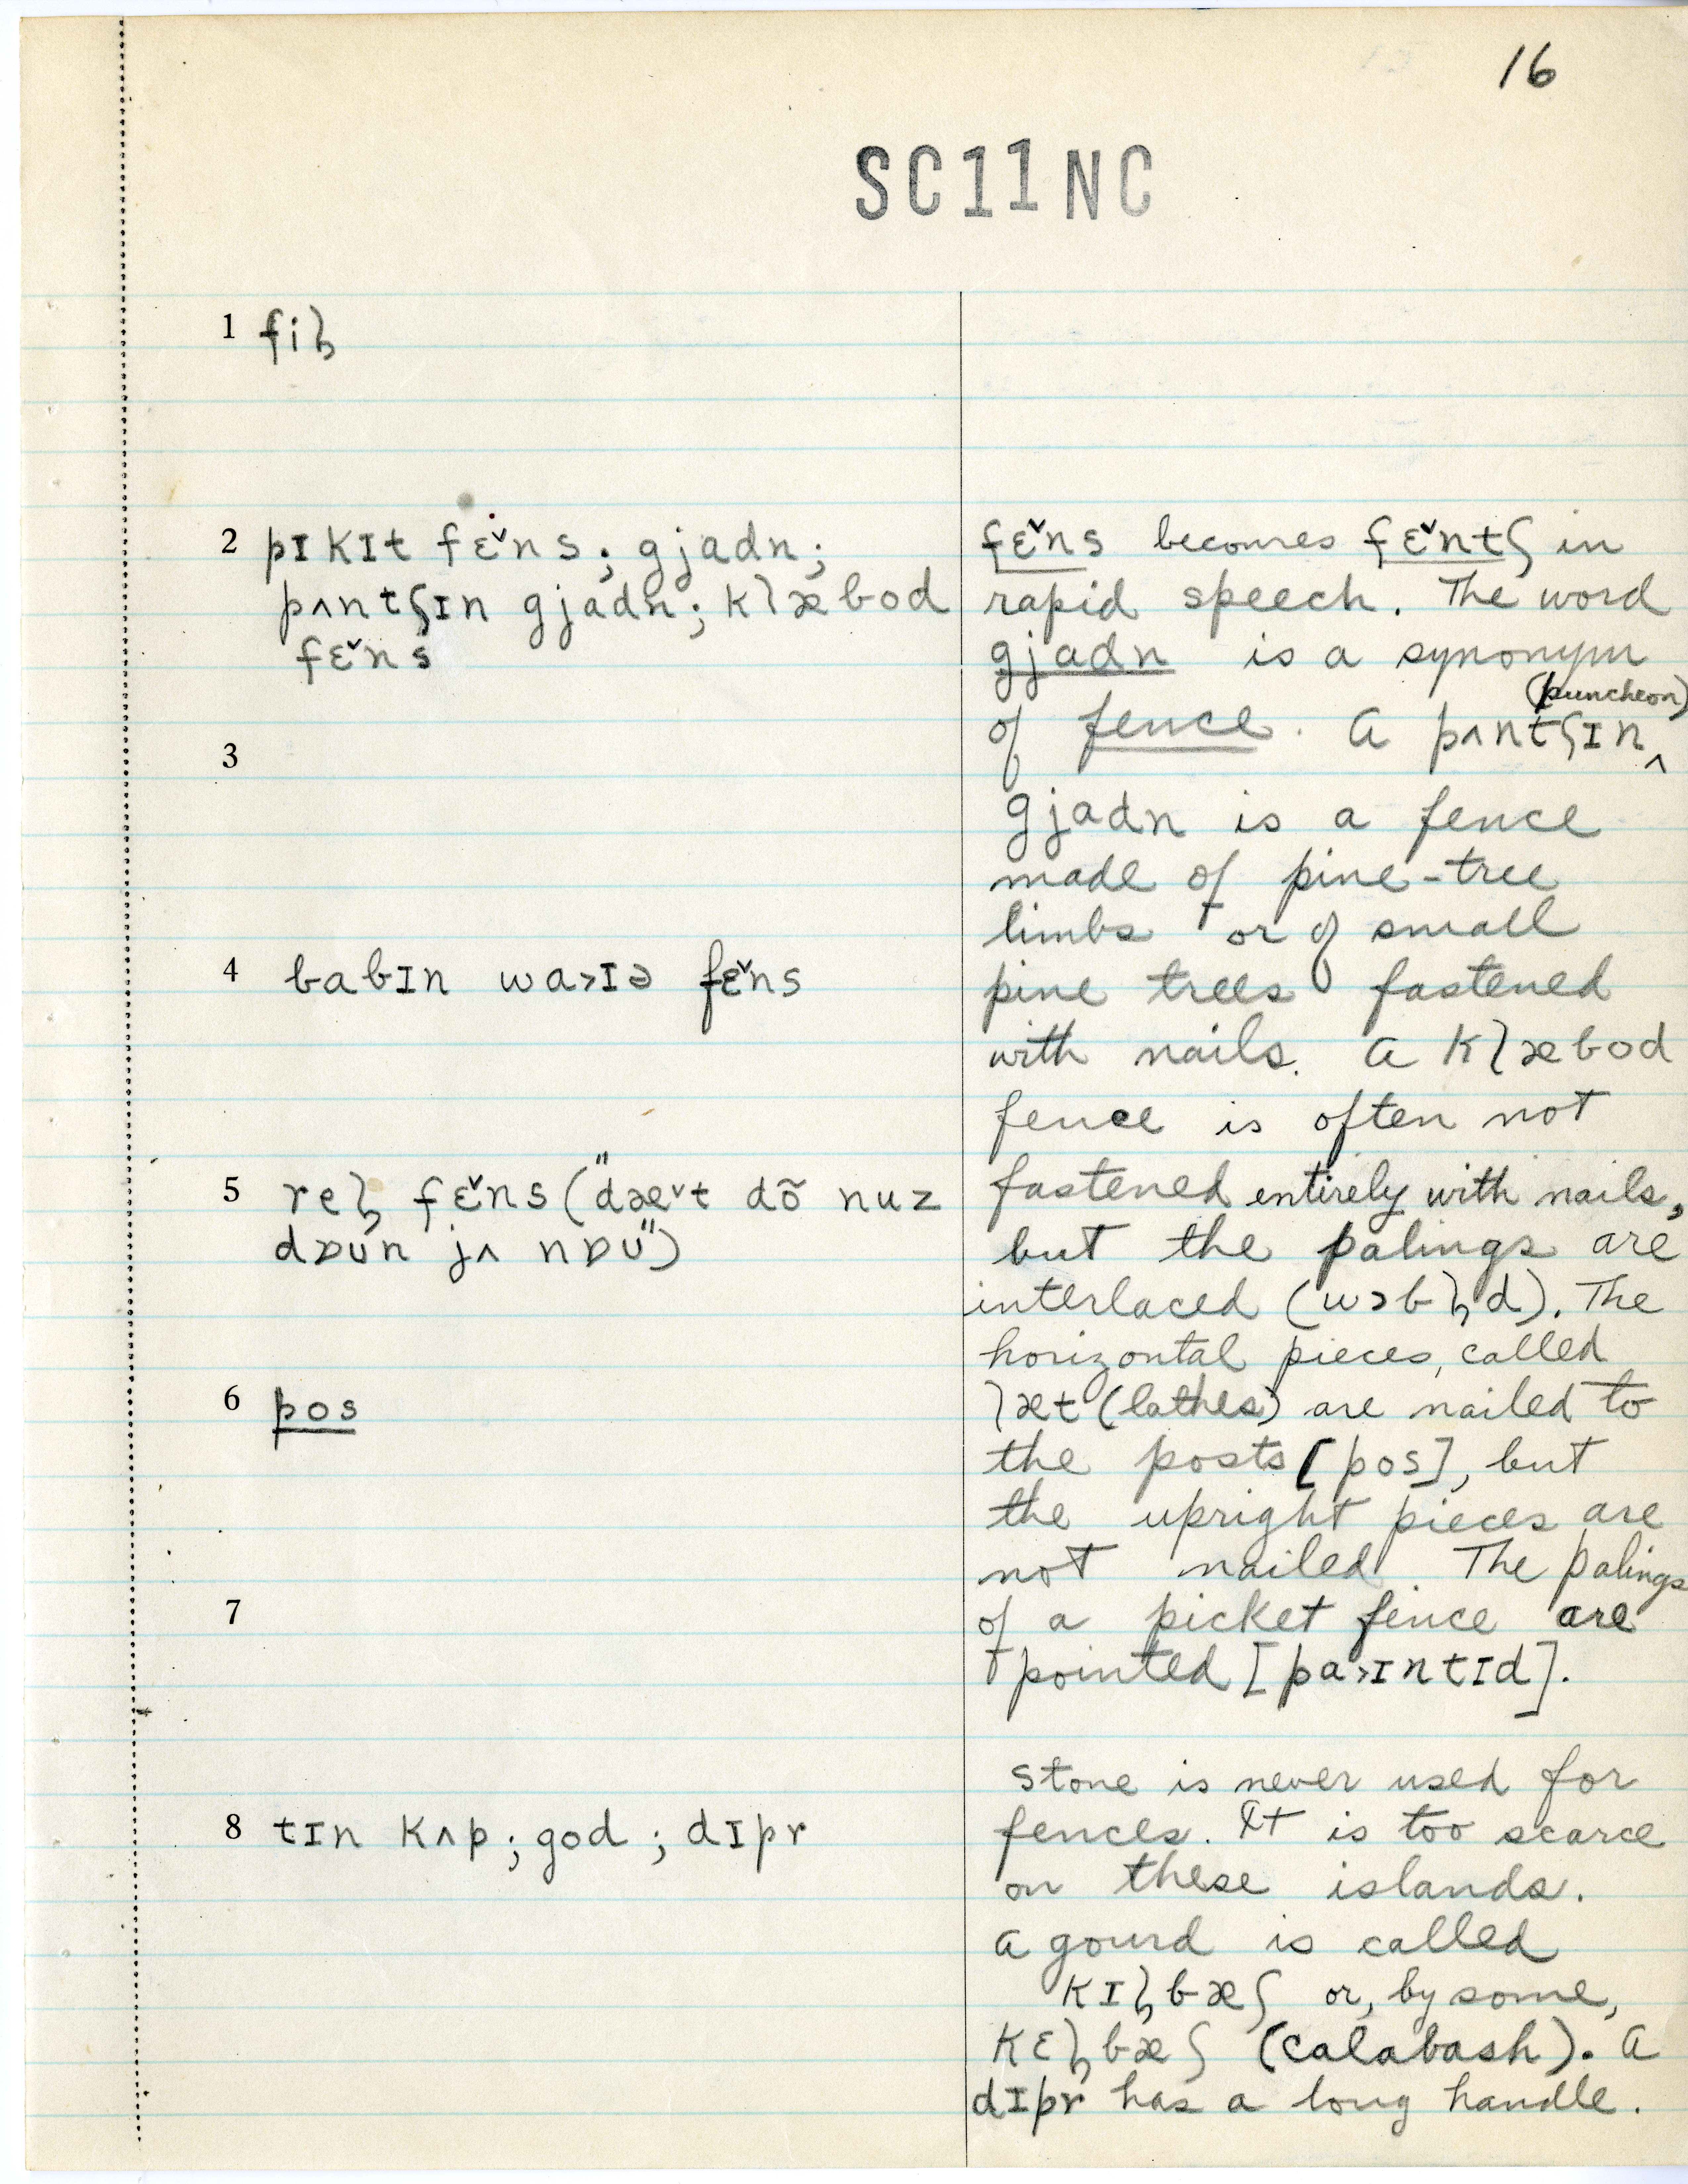 16
SC11NC
1 fil̩
2 pɪkɪt fɛ̌ns; gjadn;
pʌntʃɪn gjadn; klæbod
fɛ̌ns
3
4 babɪn wa>ɪə fɛ̌ns
5 rel̩ fɛ̌ns ("dæˇt dõ nuz
dɒun jʌ nɒu")
6 pos
7
8 tɪn kʌp; god; dɪpr
fɛ̌ns becomes fɛ̌ntʃ in
rapid speech. The word
gjadn is a synonym
of fence. A pʌntʃɪn ‸ (puncheon)
gjadn is a fence
made of pine-tree
limbs or of small
pine trees fastened
with nails. A klæbod
fence is often not
fastened entirely with nails,
but the palings are
interlaced (wɔbl̩d). The
horizontal pieces, called
læt (lathes) are nailed to
the posts [pos], but
the upright pieces are
not nailed The palings
of a picket fence are
pointed [pa>ɪntɪd].
Stone is never used for
fences. It is too scarce
on these islands.
A gourd is called
kɪl̩bæʃ or, by some,
kɛl̩bæʃ (calabash). A
dɪpr has a long handle.